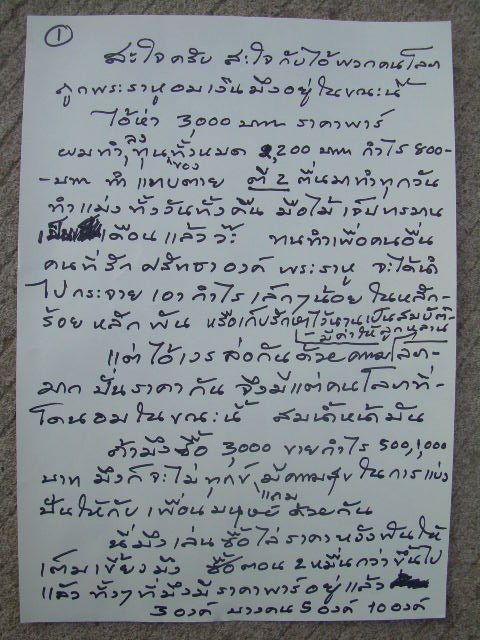 ①
สะใจครับ สะใจกับไอ้พวกคนโลภ
ถูกพระราหูอมเงินมึงอยู่ในขณะนี้
ไอ้ห่า 3,000 บาท ราคาพาร์
ผมทำ ลงทุนของทั้งหมด 2,200 บาท กำไร 800-
-บาท ทำแทบตาย ตี 2 ตื่นมาทำทุกวัน
ทำแม่งทั้งวันทั้งคืน มือไม้เจ็บทรมาน
เป็นเดือนแล้วว๊ะ ทนทำเพื่อคนอื่น
คนที่รักศรัทธาองค์พระราหู จะได้นำ
ไปกระจายเอากำไรเล็กๆน้อยในหลัก-
ร้อยหลักพัน หรือเก็บรักษาไว้นานเป็นสมบัติ-
มีค่าให้ลูกหลาน
แต่ไอ้เวรส่อกันด้วยความโลภ-
มาก ปั่นราคากัน จึงมีแต่คนโลภที่-
โดนอมในขณะนี้ สมน้ำหน้ามัน
ถ้ามึงซื้อ 3,000 ขายกำไร 500,1,000
บาท มึงก็จะไม่ทุกข์ แถมมีความสุขในการแบ่ง
ปันให้กับเพื่อนมนุษย์ด้วยกัน
นี่มึงเล่นซื้อไล่ราคาหวังฟันให้
เต็มเขี้ยวมึง ซื้อตอน 2 หมื่นกว่าขึ้นไป
แล้ว ทั้งๆที่มึงมีราคาพาร์อยู่แล้ว
3 องค์ บางคน 5 องค์ 10 องค์